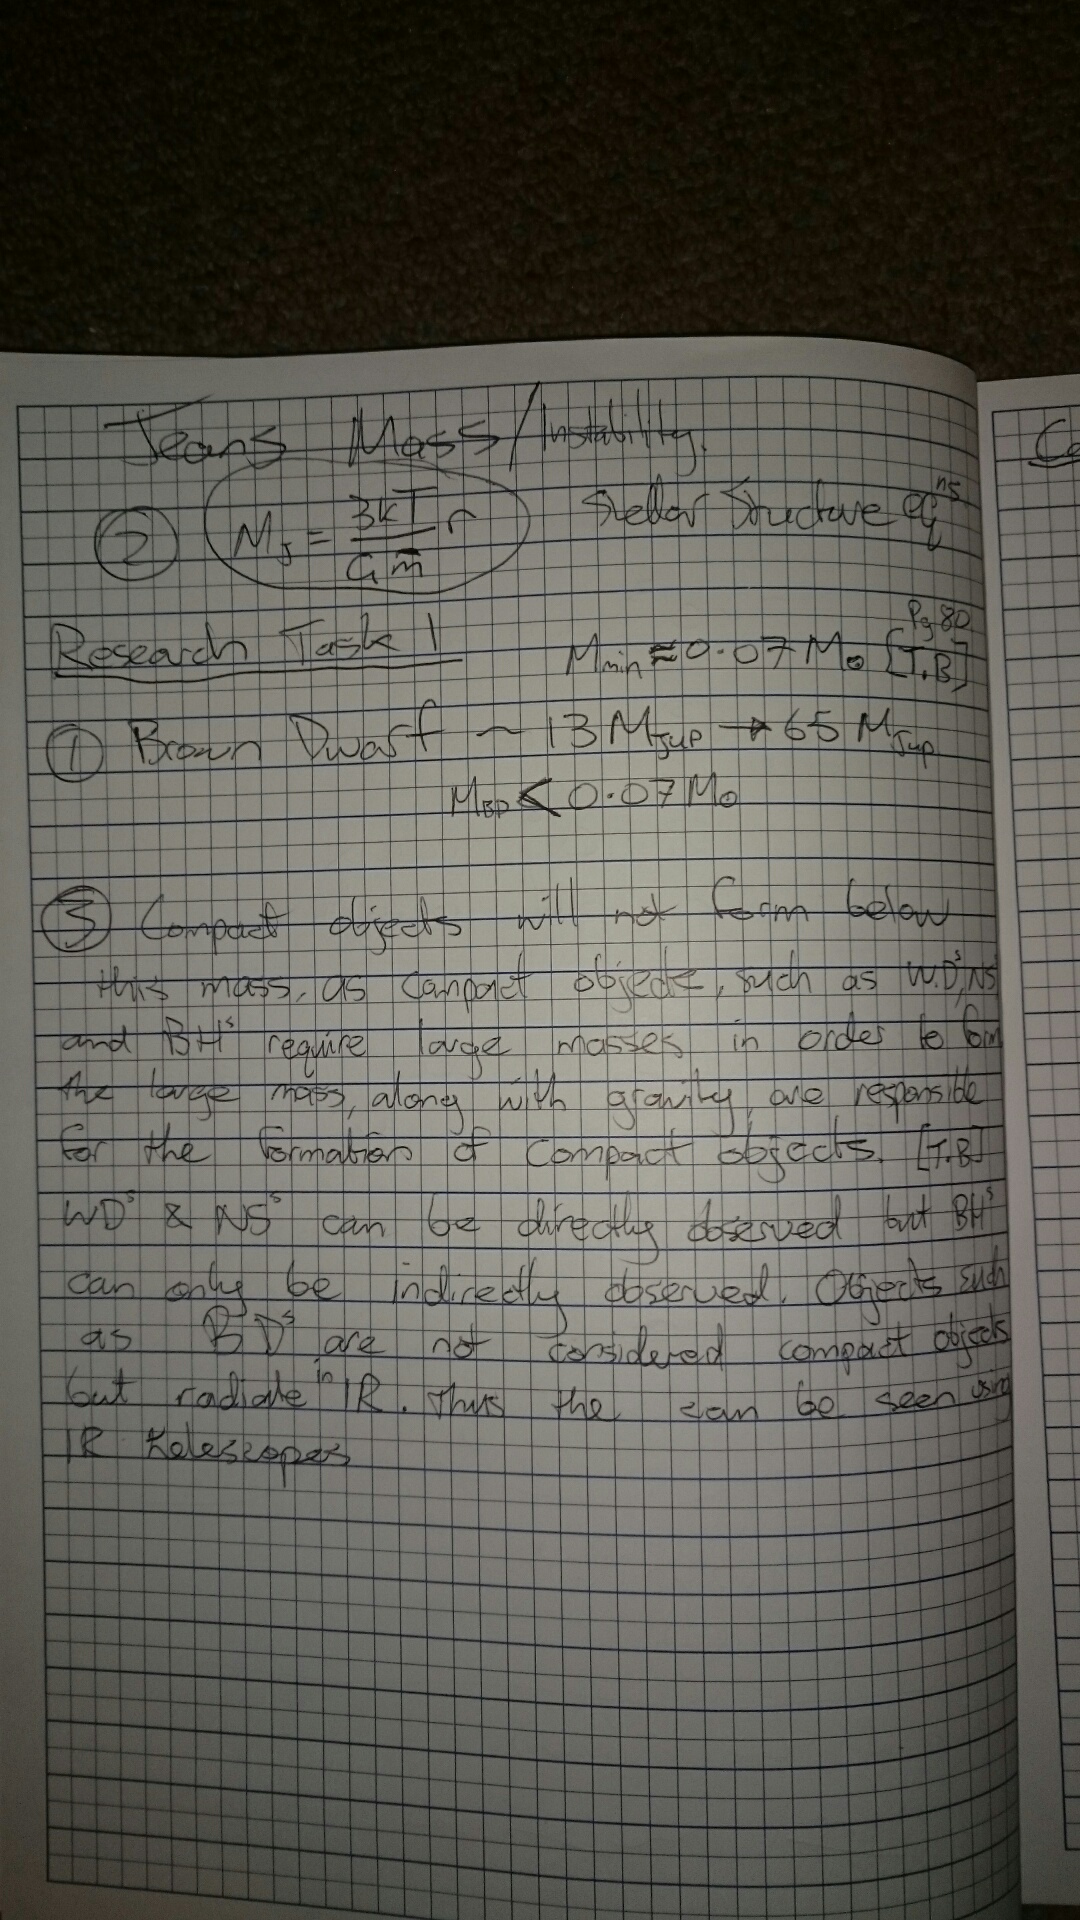 Jeans Mass/Instability.
② M_J = 3kT/Gm̄ r Stellar Structure eqⁿˢ
Research Task 1 M_min ≈ 0.07 M⊙ [T.B] Pg 80
① Brown Dwarf ~ 13 M_Jup → 65 M_Jup
M_BD < 0.07 M⊙
③ Compact objects will not form below
this mass, as compact objects, such as W.Dˢ, NSˢ
and BHˢ require large masses in order to form
the large mass, along with gravity, are responsible
for the formation of compact objects. [T.B]
WDˢ & NSˢ can be directly observed but BHˢ
can only be indirectly observed. Objects such
as BDˢ are not considered compact objects
but radiate in IR. Thus the can be seen using
IR telescopes
Co